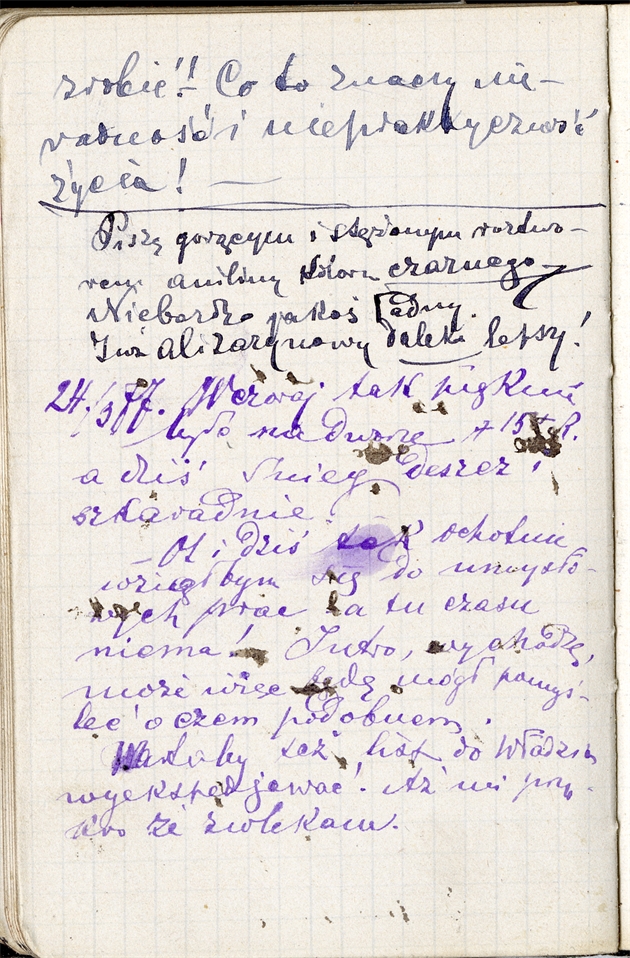 zrobić!! Co to znaczy nie-
radność i niepraktyczność
życia! —
Piszę gorącym i stężonym roztwo-
rem aniliny koloru czarnego
Niebardzo jakoś ładny.
Już alizarynowy daleko lepszy!
24/3 77. Wczoraj tak pięknie
było na dworze + 15+ R.
a dziś śnieg deszcz i
szkaradnie
— Ot i dziś tak ochotnie
wziąłbym się do umysło-
wych prac za tu czasu
niema! Jutro, wychodzę,
może więc będę mógł pomyś-
leć o czem podobnem.
Wartoby też list do Władzia
wyekspedjować! Aż mi przy-
kro że zwlekam.